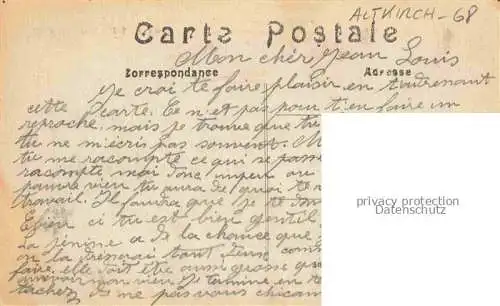 ALTKIRCH - 68
Carte Postale
Mon chér Jean Louis
Correspondance Adresse
Je croi te faire plaisir en t'adrenant
cette carte. Ce n'et pas pour t'en faire un
reproche, mais je trouve que tu
tu ne m'écris pas souvent. M
tu me raconpte ce qui se passe
raconpte moi donc un peu ou
pauvre vieu tu aura de quoi te r
travail. Il faura que je te don
Enfin ci tu est bien gentil
La Jénine a de la chance que
on la tout deux com
faire, elle doit être aussi grosse qu
mon vieu Je termine en te
tachez de me pas vous chican
privacy protection
Datenschutz